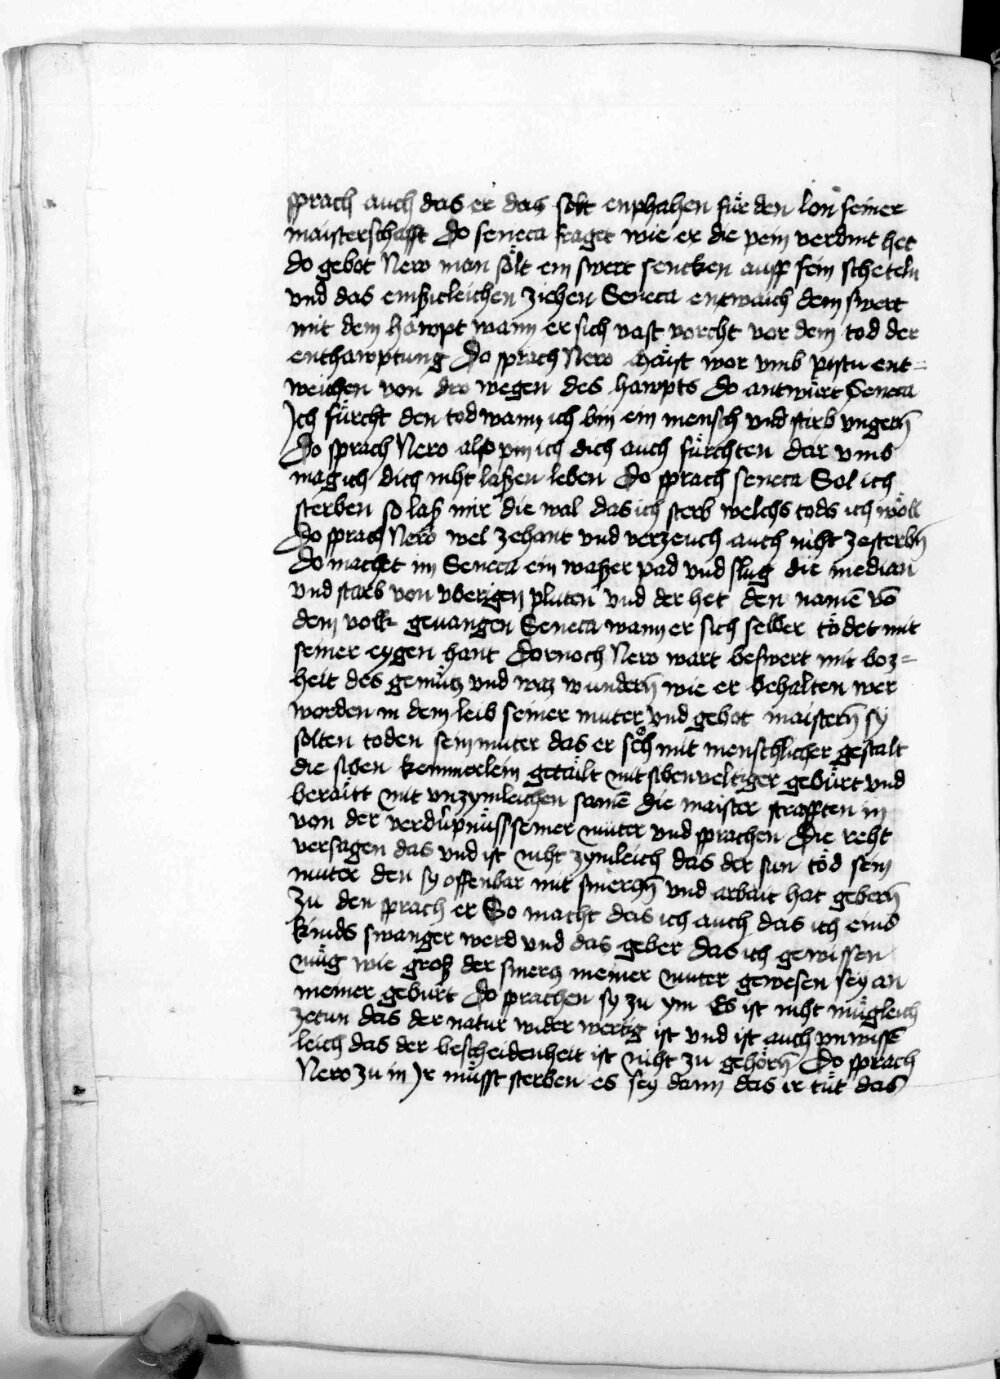 sprach auch das er das solt enphahen für den lon seiner
maisterschafft Do seneca fraget wie er die pein verdint het
do gebot Nero man sölt ein swert sencken auff sein scheteln
vnd das einsticleichen ziehen Seneca entwaich dem swert
mit dem hawpt wann er sich vast vorcht vor dem tod der
enthawptung Do sprach Nero maist wor vmb pistu ent=
weichen von dro wegen des hawpts Do antwürt Seneca
Ich fürcht den tod wann ich bin ein mensch vnd stirb vngern̄
Do sprach Nero also pin ich dich auch fürchten dar vmb
mag ich dich niht laßen leben Do sprach seneca Sol ich
sterben so laß mir die wal das ich sterb welchs tods ich wöll
Do sprach Nero wel zehant vnd verzeuch auch niht zesterbn̄
Do machet im Seneca ein waßer pad vnd slug die median
vnd starb von vberigen pluten vnd der het den namē vō
dem volk geuangen Seneca wann er sich selber tödet mit
seiner eygen hant Dornoch Nero wart beswert mit boz=
heit des gemütz vnd waz wundern̄ wie er behalten wer
worden in dem leib seiner muter vnd gebot maistern̄ sy
solten toden sein muter das er seh mit menschlicher gestalt
die siben kemmerlein getailt mit sibenueltiger gebürt vnd
beraitt mit vnzymleichen samē die maister strafften in
von der verdüpnüss seiner müter vnd sprachen Die reht
versagen das vnd ist niht zymleich das der sun töd sein
muter den sy offenbar mit smerczn̄ vnd arbait hat gebern̄
zu den sprach er So macht das ich auch das ich eins
kinds swanger werd vnd das geber das ich gewissen
müg wie groß der smercz meiner muter gewesen sey an
meiner gebürt Do sprachen sy zu ym Es ist niht mügleich
zetun das der natur wider wertig ist vnd ist auch vnwissē
leich das der bescheidenheit ist niht zu gehörn̄ Do sprach
Nero zu in Ir müsst sterben es sey dann das ir tüt das